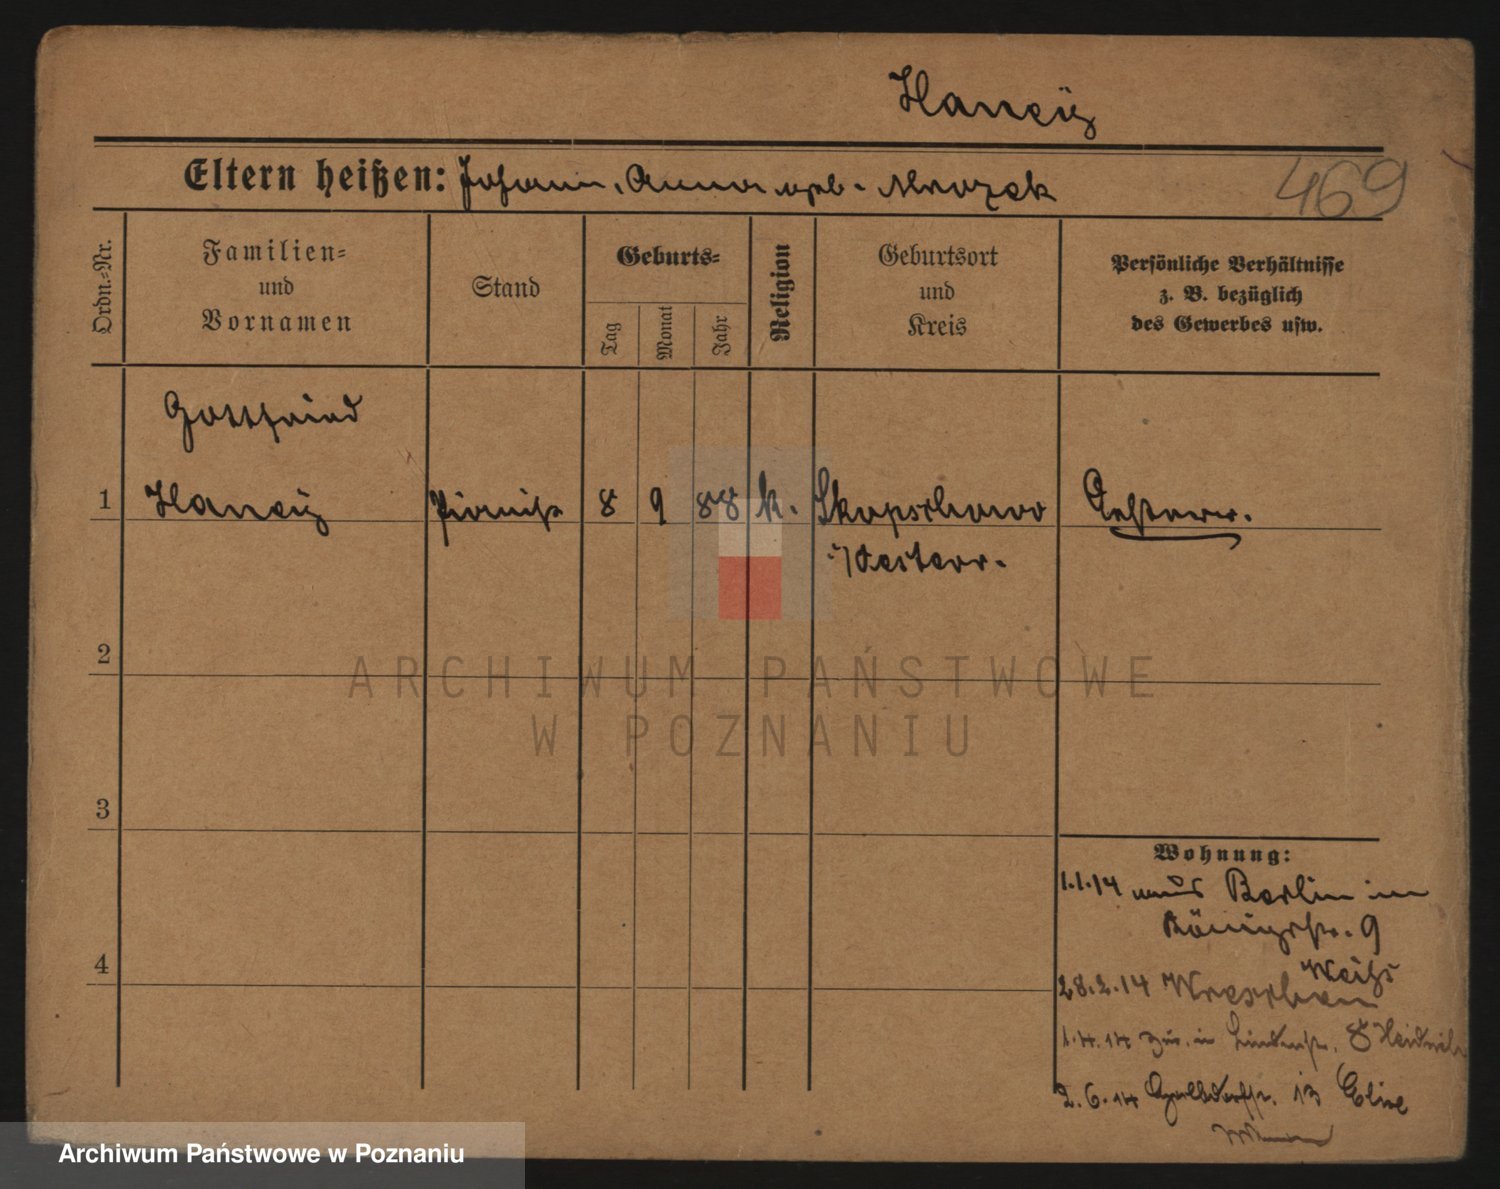 Hanciz
Eltern heißen: Johann, Anna geb. Mrozek
469
Ordn.=Nr.
Familien=
und
Vornamen
Stand
Geburts=
Tag
Monat
Jahr
Religion
Geburtsort
und
Kreis
Persönliche Verhältnisse
z. B. bezüglich
des Gewerbes usw.
Gottfried
1 Hanciz Pianist 8 9 88 k. Skopschowo Oesterr.
i/Oesterr.
2
3
4
Wohnung:
1.1.14 aus Berlin in
Königstr. 9
Weiß
28.2.14 Wreschen
1.4.14 zur. in Lindenstr. 8
2.6.14 13 Elise
ARCHIWUM PAŃSTWOWE
W POZNANIU
Archiwum Państwowe w Poznaniu